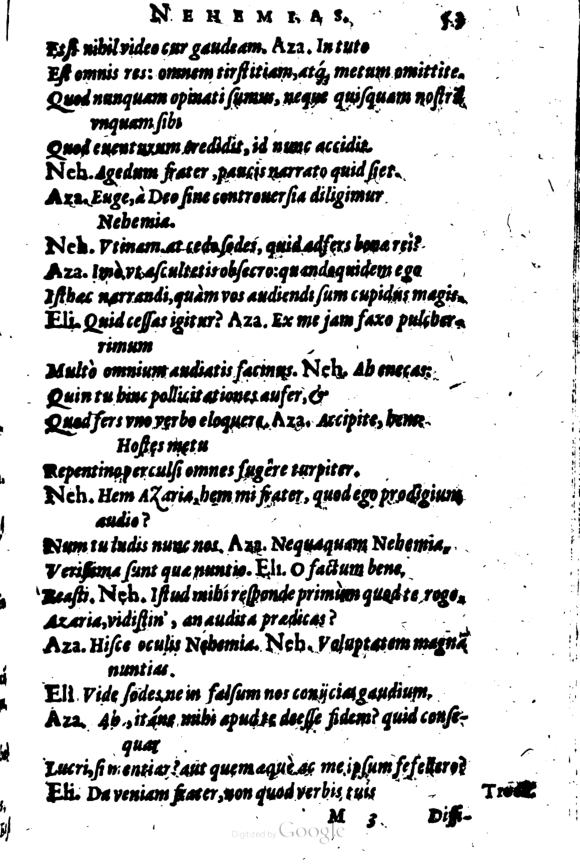 NEHEMIAS. 53
Est nihil video cur gaudeam. Aza. In tuto
Est omnis res: omnem tristitiam, atq; metum omittite.
Quod nunquam opinati sumus, neque quisquam nostrũ
vnquam sibi
Quod euenturum credidit, id nunc accidit.
Neh. Agedum frater, paucis narrato quid siet.
Aza. Euge, à Deo sine controuersia diligimur
Nehemia.
Neh. Vtinam. at cedo sodes, quid adfers bona rei?
Aza. Imò, vt ascultetis obsecro: quandoquidem ego
Isthæc narrandi, quàm vos audiendi sum cupidus magis.
Eli. Quid cessas igitur? Aza. Ex me jam faxo pulcher-
rimum
Multò omnium audiatis facinus. Neh. Ah enecas:
Quin tu hinc pollicitationes aufer, &
Quod fers vno verbo eloquere. Aza. Accipite, hem.
Hostes metu
Repentino perculsi omnes fugêre turpiter.
Neh. Hem Azaria, hem mi frater, quod ego prodigium
audio?
Num tu ludis nunc nos. Aza. Nequaquam Nehemia,
Verissima sunt quæ nuntio. Eli. O factum bene,
Beasti. Neh. Istud mihi responde primùm quod te rogo.
Azaria, vidistin', an audita prædicas?
Aza. Hisce oculis Nehemia. Neh. Voluptatem magnã
nuntias.
Eli. Vide sodes, ne in falsum nos conijcias gaudium,
Aza. Ah, itáne mihi apud te deesse fidem? quid conse-
quar
Lucri, si mentiar? aut quem æquè ac me ipsum fefellero?
Eli. Da veniam frater, non quod verbis tuis
M 3 Diffi-
Digitized by Google